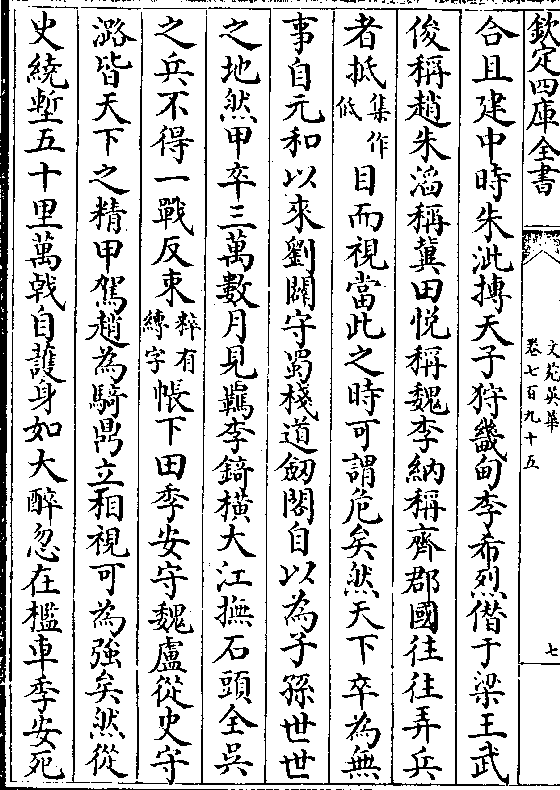 欽定四庫全書
文苑英華
卷七百九十五
七
合且建中時朱泚搏天子狩畿甸李希烈僣于梁王武
俊稱趙朱滔稱冀田悦稱魏李納稱齊郡國往往弄兵
者抵集作低目而視當此之時可謂危矣然天下卒為無
事自元和以來劉闢守蜀棧道劒閣自以為子孫世世
之地然甲卒三萬數月見羈李錡横大江撫石頭全吳
之兵不得一戰反束粹有縛字帳下田季安守魏盧從史守
潞皆天下之精甲駕趙為騎鼎立相視可為強矣然從
史繞塹五十里萬戟自護身如大醉忽在檻車季安死